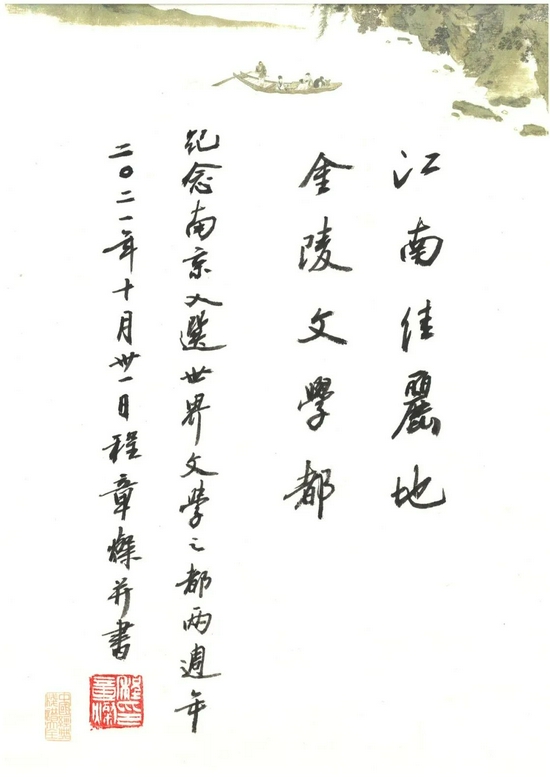 江南佳麗地
金陵文學都
紀念南京入選世界文學之都兩週年
二〇二一年十月卅一日程章燦并書
程章燦印